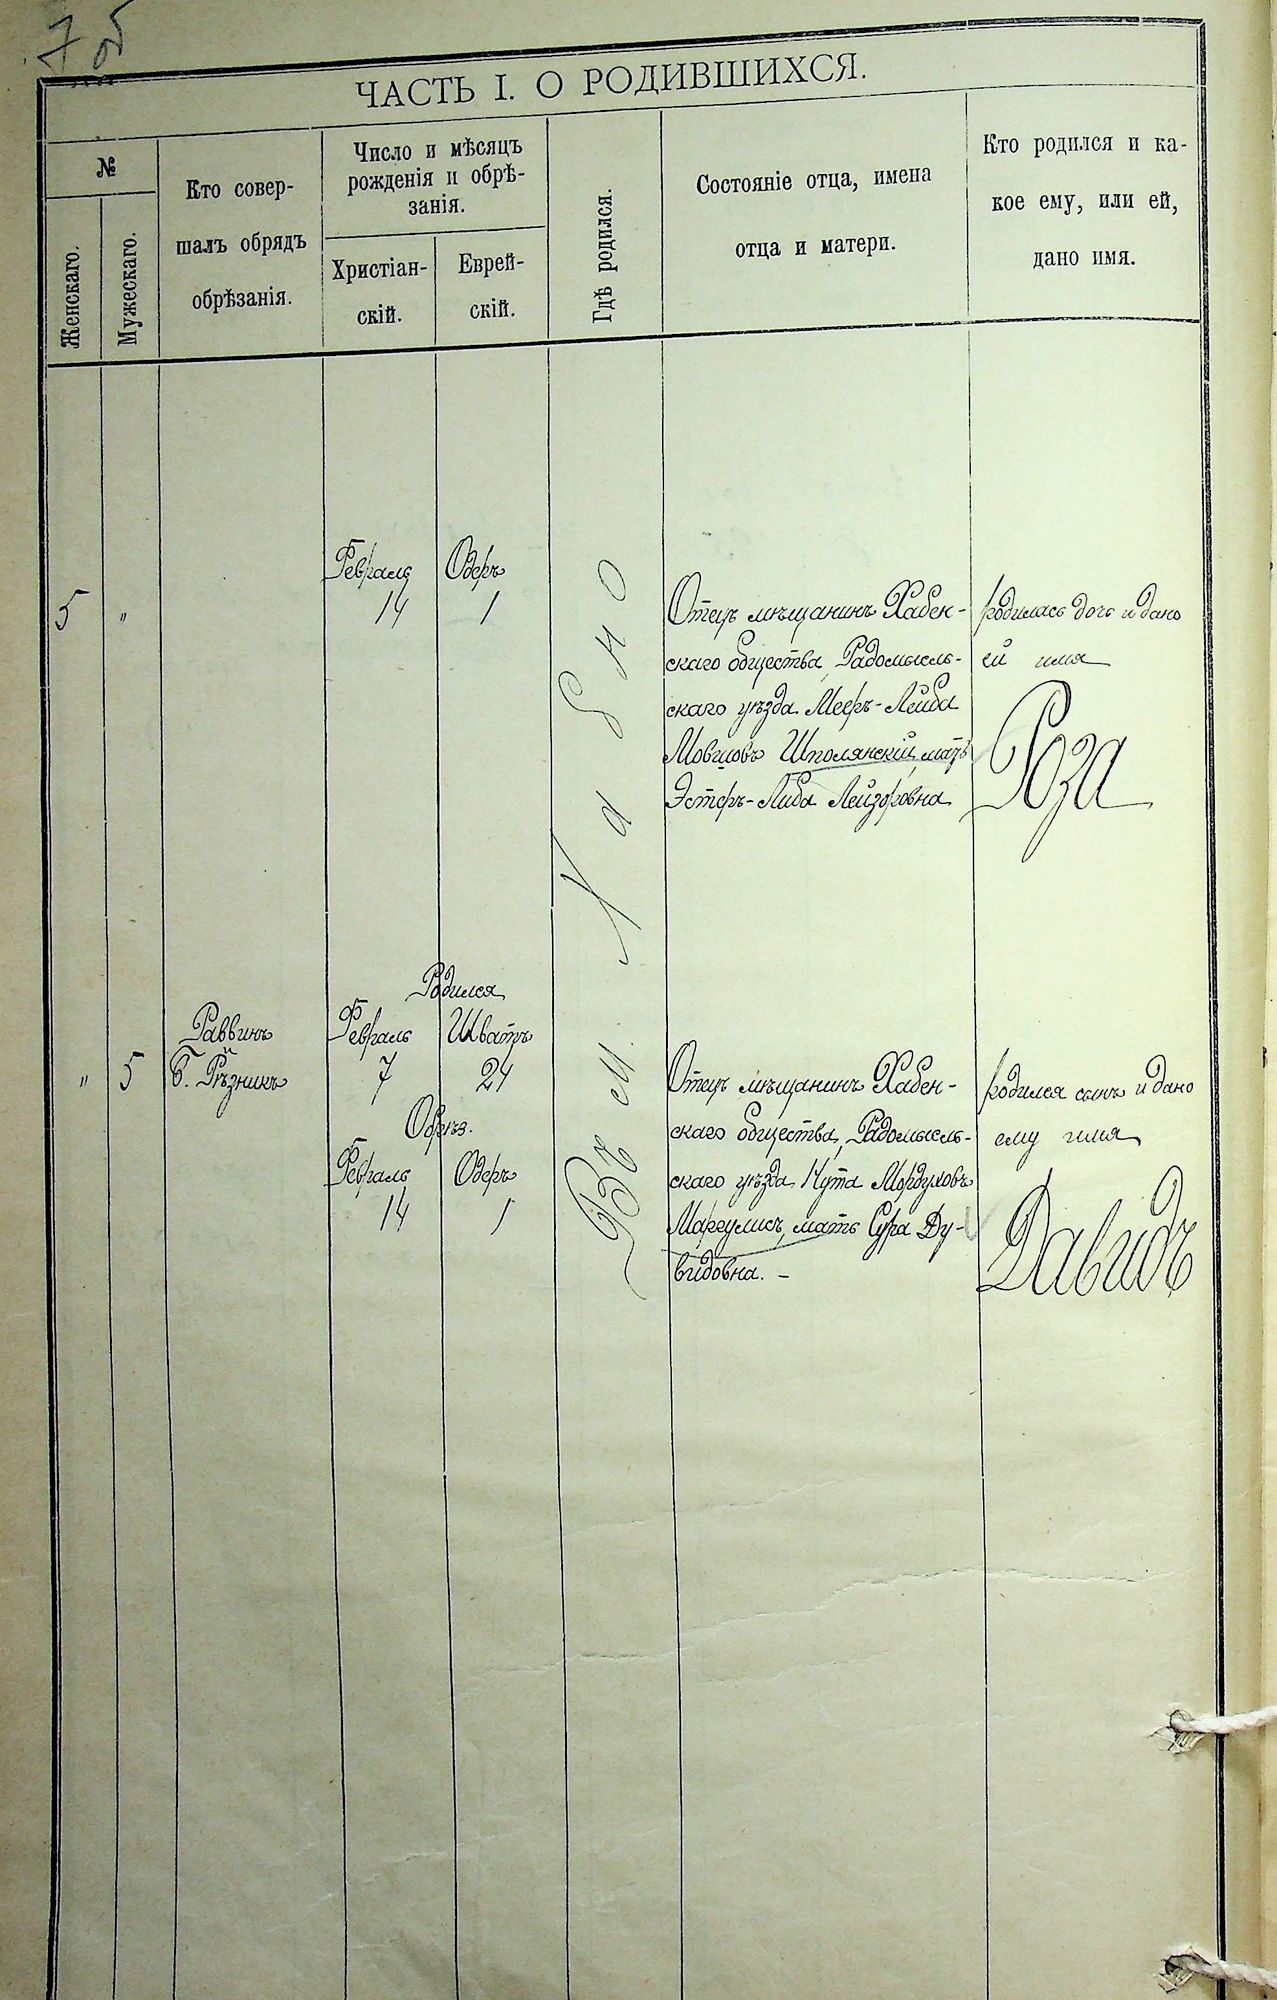 7 об
ЧАСТЬ I. О РОДИВШИХСЯ.
№
Женскаго.
Мужескаго.
Кто совер-
шалъ обрядъ
обрѣзанія.
Число и мѣсяцъ
рожденія и обрѣ-
занія.
Христіан-
скій.
Еврей-
скій.
Гдѣ родился.
Состояніе отца, имена
отца и матери.
Кто родился и ка-
кое ему, или ей,
дано имя.
5
"
Февраль
14
Одеръ
1
Въ м. Хабно
Отецъ мѣщанинъ Хабен-
скаго общества, Радомысль-
скаго уѣзда Мееръ-Лейба
Мовшовъ Шполянскій, мать
Эстеръ-Либа Лейзоровна
родилась дочь и дано
ей имя
Роза
"
5
Раввинъ
Б. Рѣзникъ
Родился
Февраль
7
Шватъ
24
Обрѣз.
Февраль
14
Одеръ
1
Отецъ мѣщанинъ Хабен-
скаго общества, Радомысль-
скаго уѣзда Нута Мордуховъ
Маргулисъ, мать Сура Ду-
видовна. –
родился сынъ и дано
ему имя
Давидъ